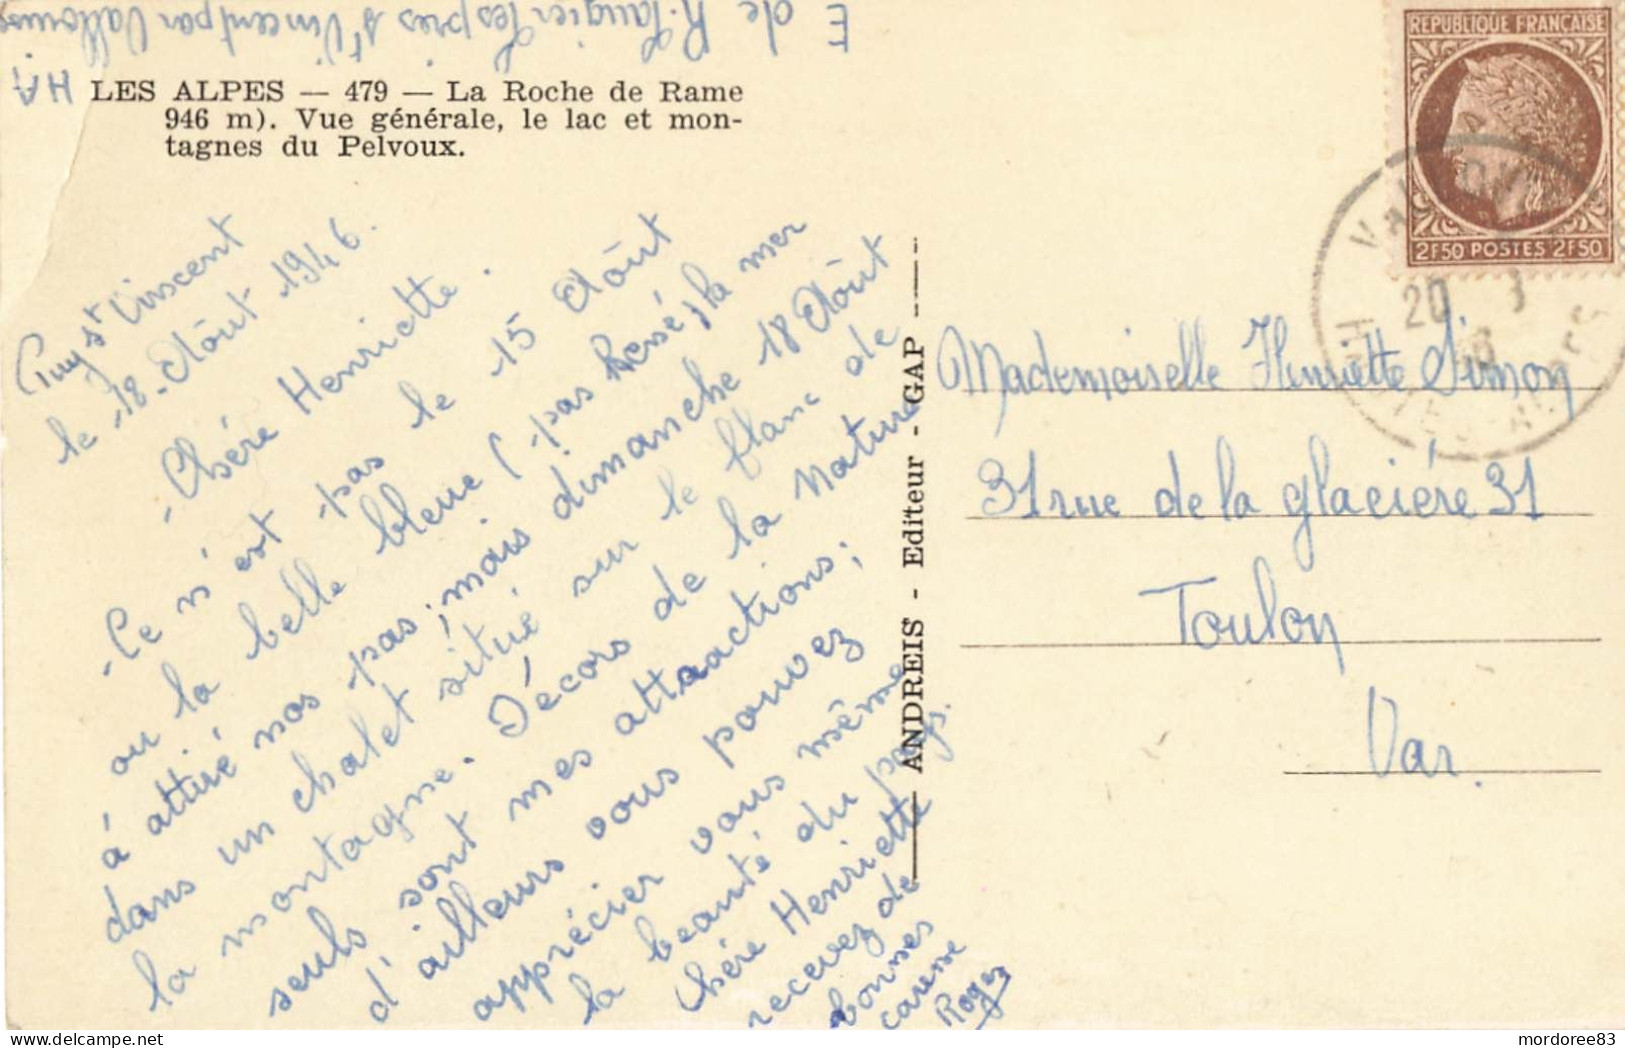 E de R. Laugier Les pres St Vincent par Vallouise
HA
LES ALPES — 479 — La Roche de Rame
946 m). Vue générale, le lac et mon-
tagnes du Pelvoux.
Puy St Vincent
le 18 Août 1946.
Chére Henriette.
Ce n'est pas le 15 Août
ou la belle bleue (pas la mer
à attiré nos pas; mais dimanche 18 Août
dans un chalet situé sur le flanc de
la montagne. Décors de la Nature
seuls sont mes attractions;
d'ailleurs vous pouvez
apprécier vous même
la beauté du pays.
Chére Henriette
recevez de
bonnes
caresse
Roger
ANDREIS - Editeur - GAP
REPUBLIQUE FRANÇAISE
2F50 POSTES 2F50
20
HAUTES ALPES
Mademoiselle Henriette Simon
31 rue de la glaciére 31
Toulon
Var.
mordoree83